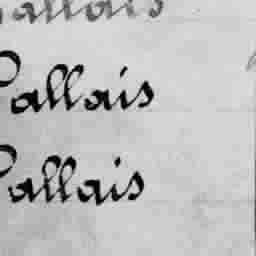 Pallais
Pallais
Pallais